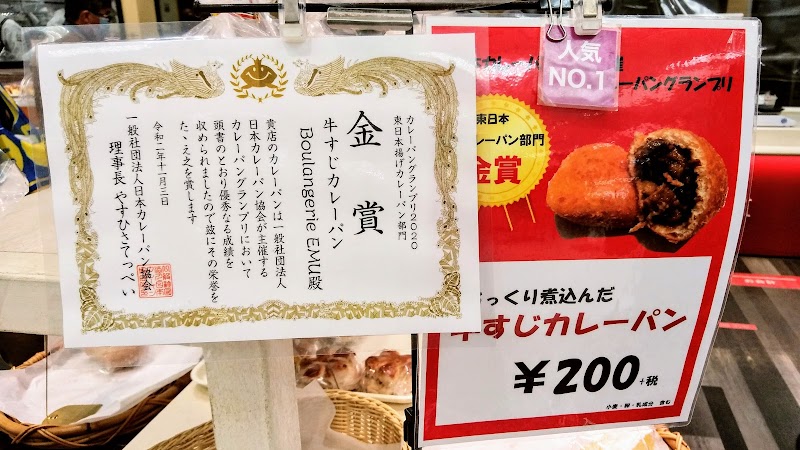 カレーパングランプリ2020
東日本揚げカレーパン部門
金賞
牛すじカレーパン
Boulangerie EMU殿
貴店のカレーパンは一般社団法人
日本カレーパン協会が主催する
カレーパングランプリにおいて
頭書のとおり優秀なる成績を
収められましたので茲にその栄誉を
たゝえ之を賞します
令和二年十一月三日
一般社団法人日本カレーパン協会
理事長 やすひさてっぺい
人気
NO.1
ーパングランプリ
東日本
レーパン部門
金賞
っくり煮込んだ
牛すじカレーパン
¥200+税
小麦・卵・乳成分 含む